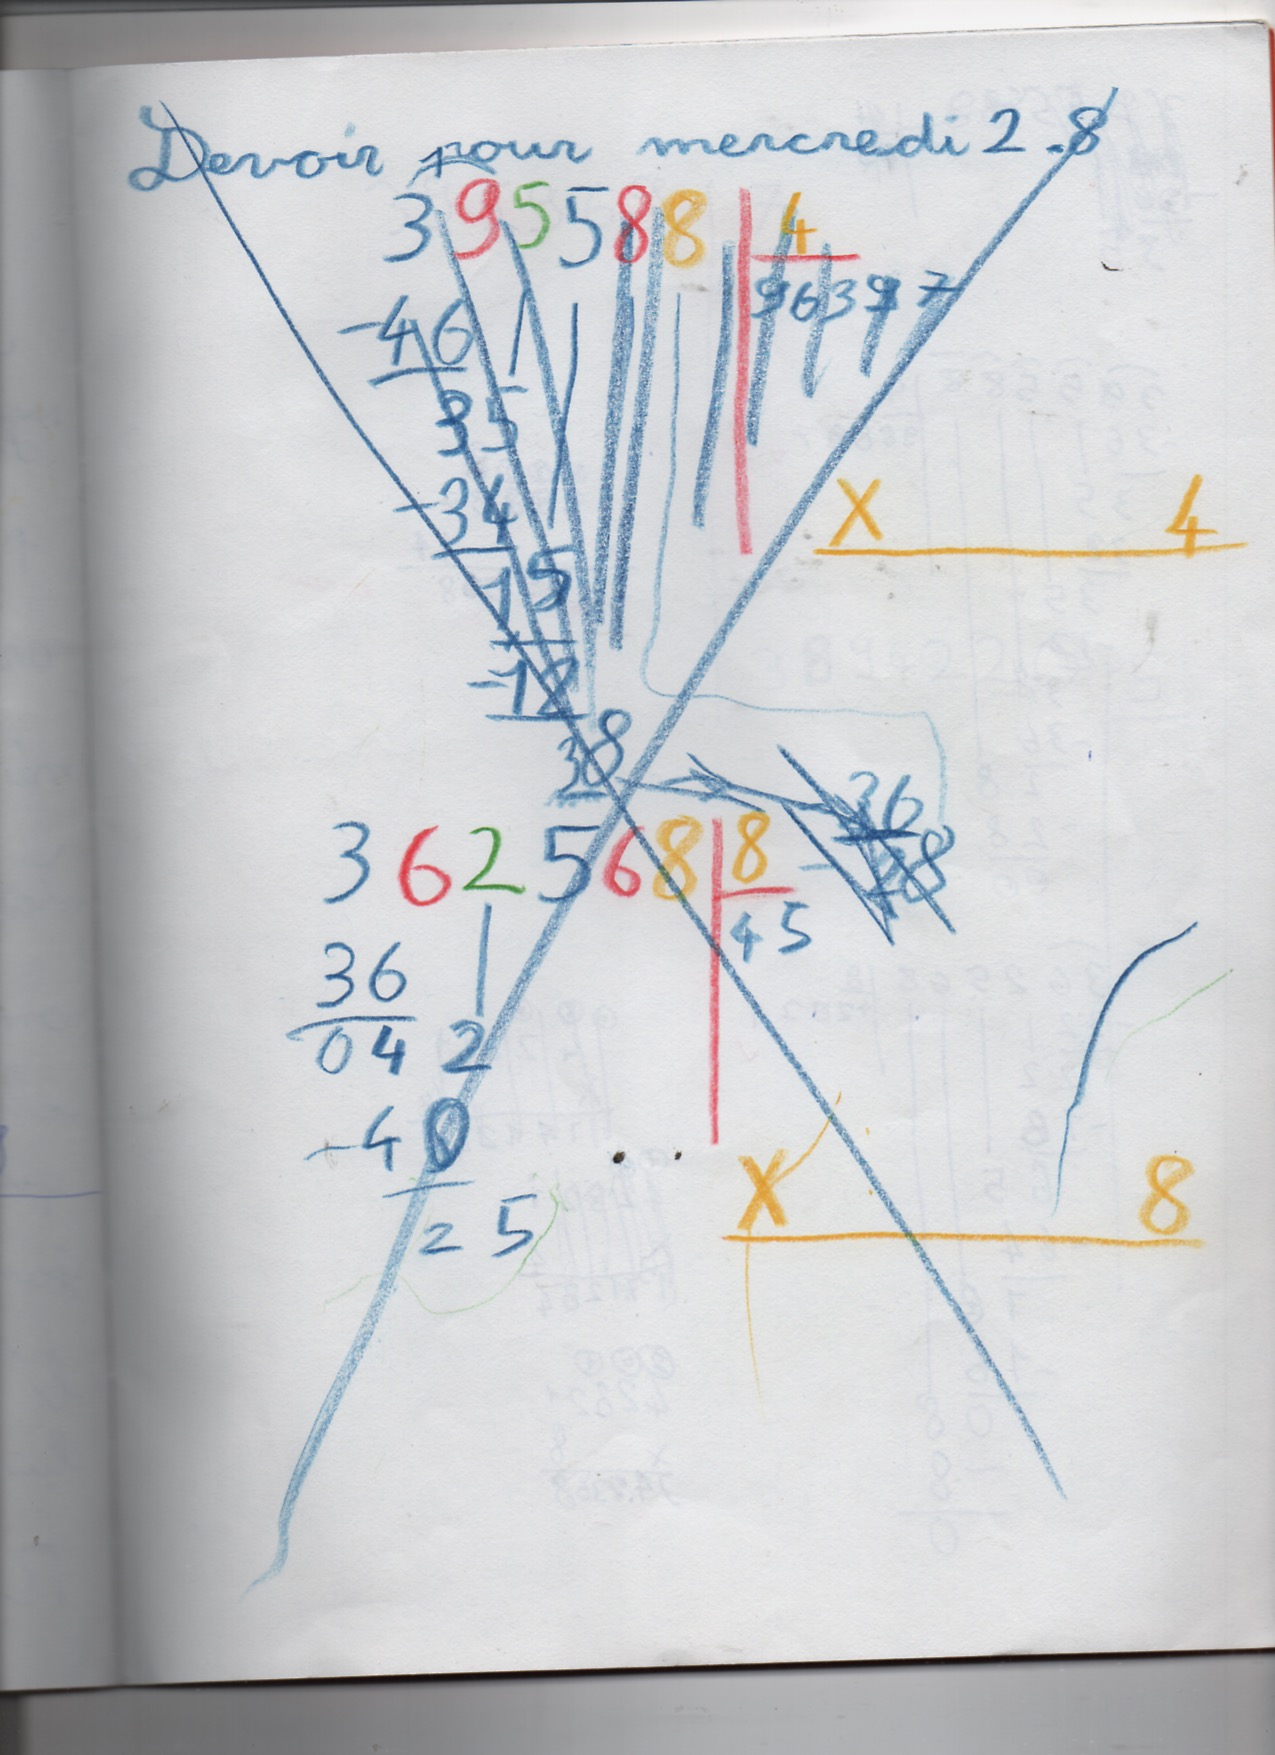 Devoir pour mercredi 2.8
395588 4
96397
-46
35
-34
x 4
15
-12
38
36
- 28
362568 8
45
36
042
-40
25
x 8